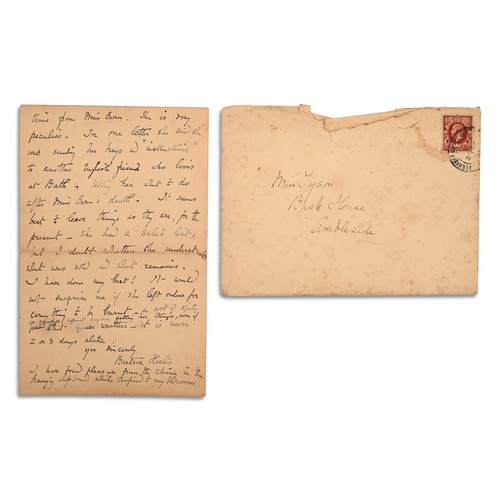 time from Miss Owen. She is very
peculiar. In one letter she said she
was sending her keys & "instructions"
to another English friend who lives
at Bath - telling her what to do
after Miss Owen's death. It seems
best to leave things as they are, for the
present - she had a sale's list,
but I doubt whether she understands
what was sold & what remains.
I have done my best! It would
not surprise me if she left orders for
everything to be burnt - a sort of spite
against anyone getting her things, even if
queer weather - it is never
2 or 3 days alike.
yrs sincerely
Beatrix Heelis
I have found pleasure from the china in the
hanging cupboard while confined to my bedroom.
Miss Tyson
Bush House
Ambleside